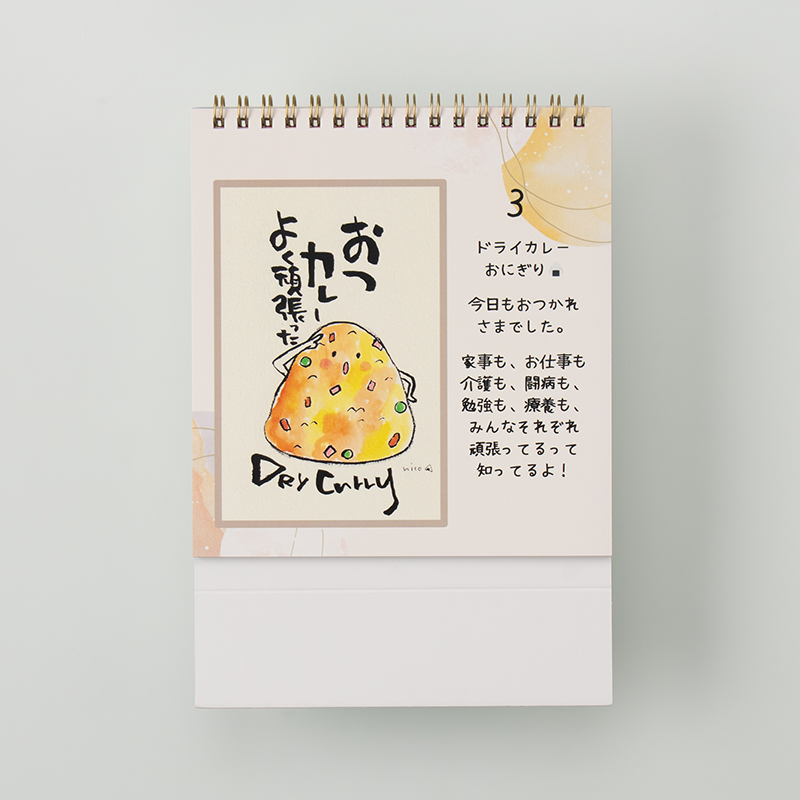 おつ
カレー
よく頑張った
DRY CURRY
nico
3
ドライカレー
おにぎり🍙
今日もおつかれ
さまでした。
家事も、お仕事も
介護も、闘病も、
勉強も、療養も、
みんなそれぞれ
頑張ってるって
知ってるよ！